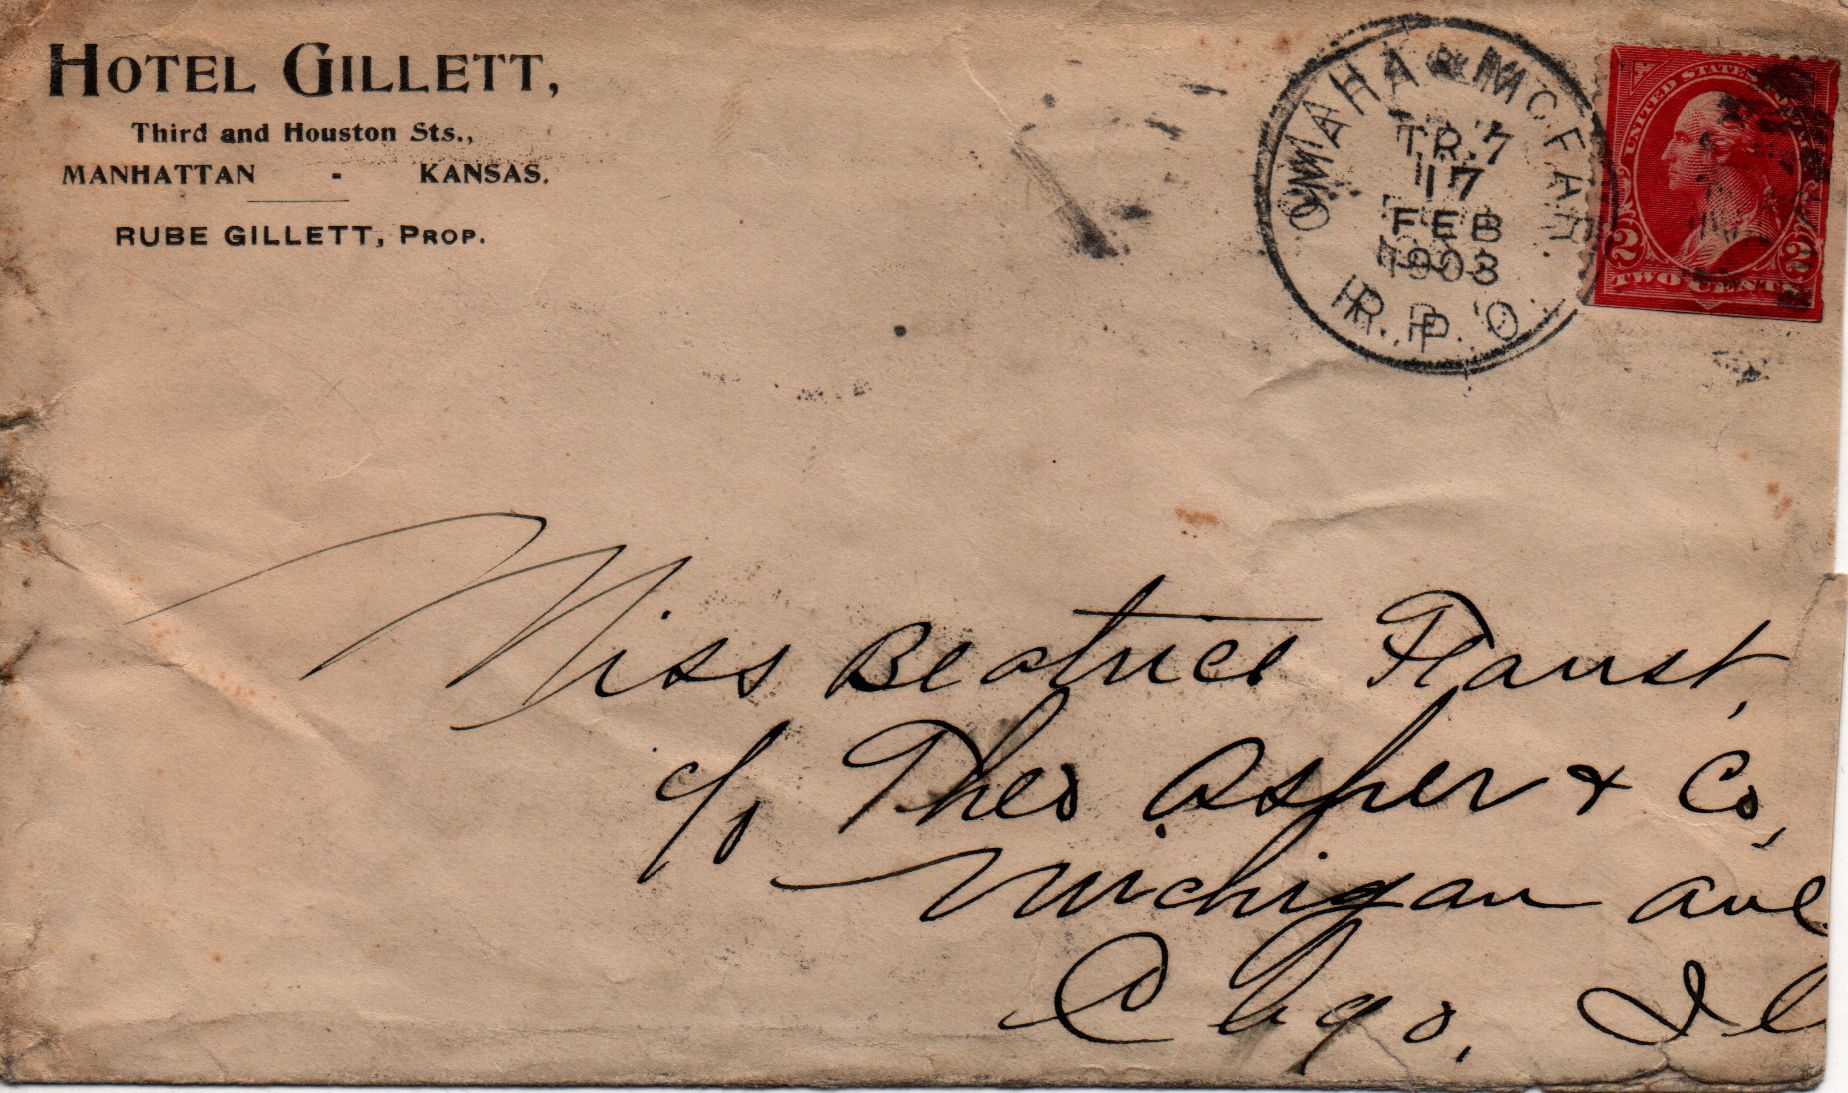 HOTEL GILLETT,
Third and Houston Sts.,
MANHATTAN - KANSAS.
RUBE GILLETT, PROP.
OMAHA & MCFAR.
TR. 7
17
FEB
1903
R. P. O.
UNITED STATES
2 2
TWO CENTS
Miss Beatrice Faust,
c/o Theo. Asher & Co,
Michigan ave
Chgo, Il